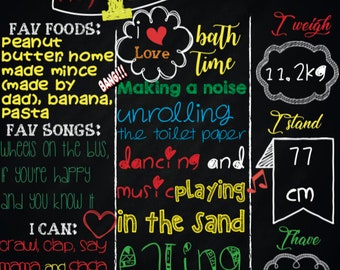 FAV FOODS:
Peanut
butter, home
made mince
(made by
dad), banana,
Pasta
FAV SONGS:
Wheels on the bus,
if you're happy
and you know it
I CAN:
crawl, clap, say
mama and dada
I
Love
BANG!!!
bath
Time
Making a noise
unrolling
the toilet paper
dancing and
music playing
in the sand
I weigh
11.2kg
I stand
77
cm
I have